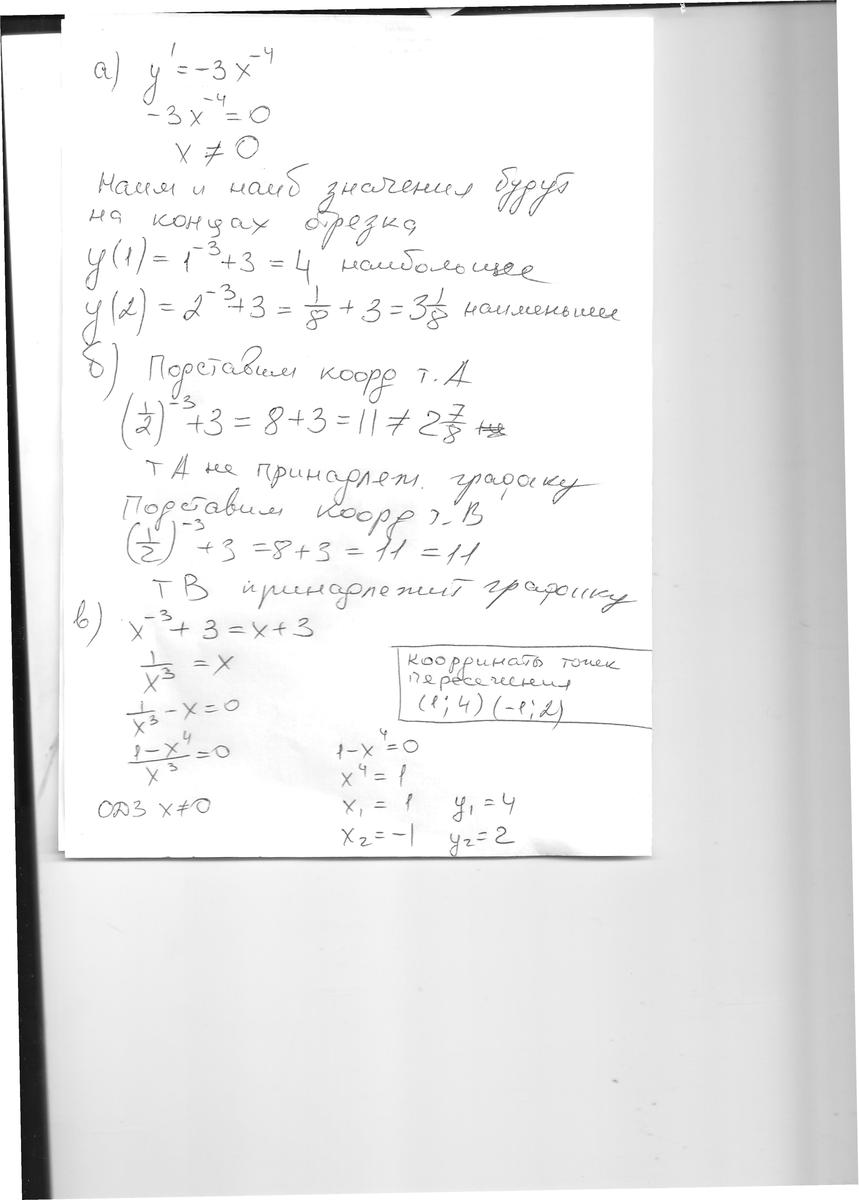 а) y' = -3x⁻⁴
-3x⁻⁴ = 0
x ≠ 0
Наим и наиб значения будут
на концах отрезка
y(1) = 1⁻³ + 3 = 4 наибольшее
y(2) = 2⁻³ + 3 = 1/8 + 3 = 3 1/8 наименьшее
б) Подставим коорд т. А
(1/2)⁻³ + 3 = 8 + 3 = 11 ≠ 2 7/8
т А не принадлеж. графику
Подставим коорд т. В
(1/2)⁻³ + 3 = 8 + 3 = 11 = 11
т В принадлежит графику
в) x⁻³ + 3 = x + 3
1/x³ = x
1/x³ - x = 0
(1-x⁴)/x³ = 0
ОДЗ x ≠ 0
1 - x⁴ = 0
x⁴ = 1
x₁ = 1 y₁ = 4
x₂ = -1 y₂ = 2
Координаты точек
пересечения
(1; 4) (-1; 2)